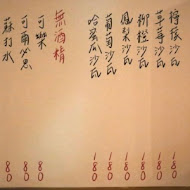 檸檬沙瓦 180
草莓沙瓦 180
柳橙沙瓦 180
鳳梨沙瓦 180
葡萄沙瓦 180
哈蜜瓜沙瓦 180
無酒精
可樂 80
可爾必思 80
蘇打水 80